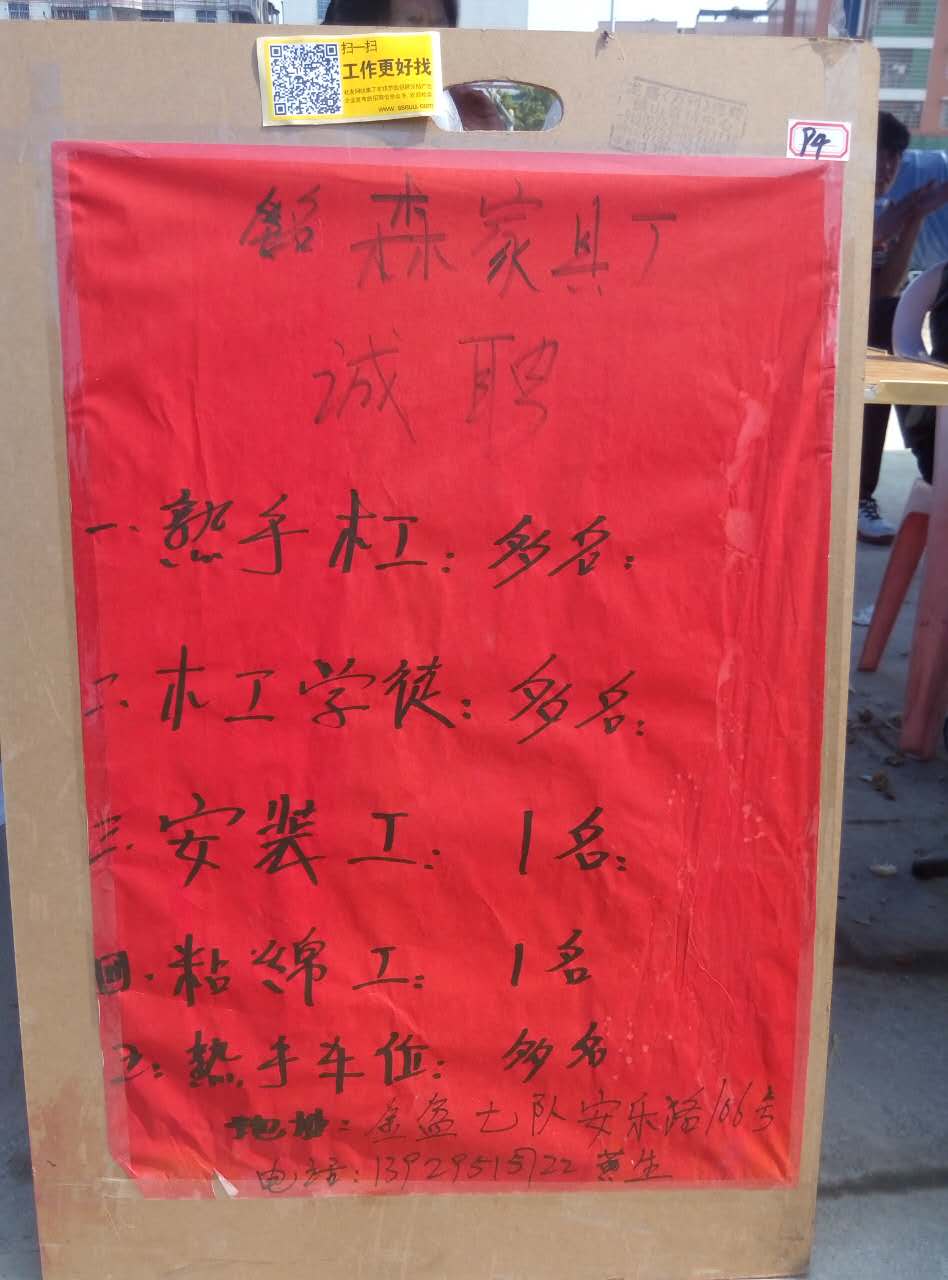 扫一扫
工作更好找
P4
森家具厂
诚聘
一、熟手木工：多名；
二、木工学徒：多名；
三、安装工：1名；
四、粘绵工：1名
五：熟手车位：多名
地址：金盘七队安乐路106号
电话：黄生